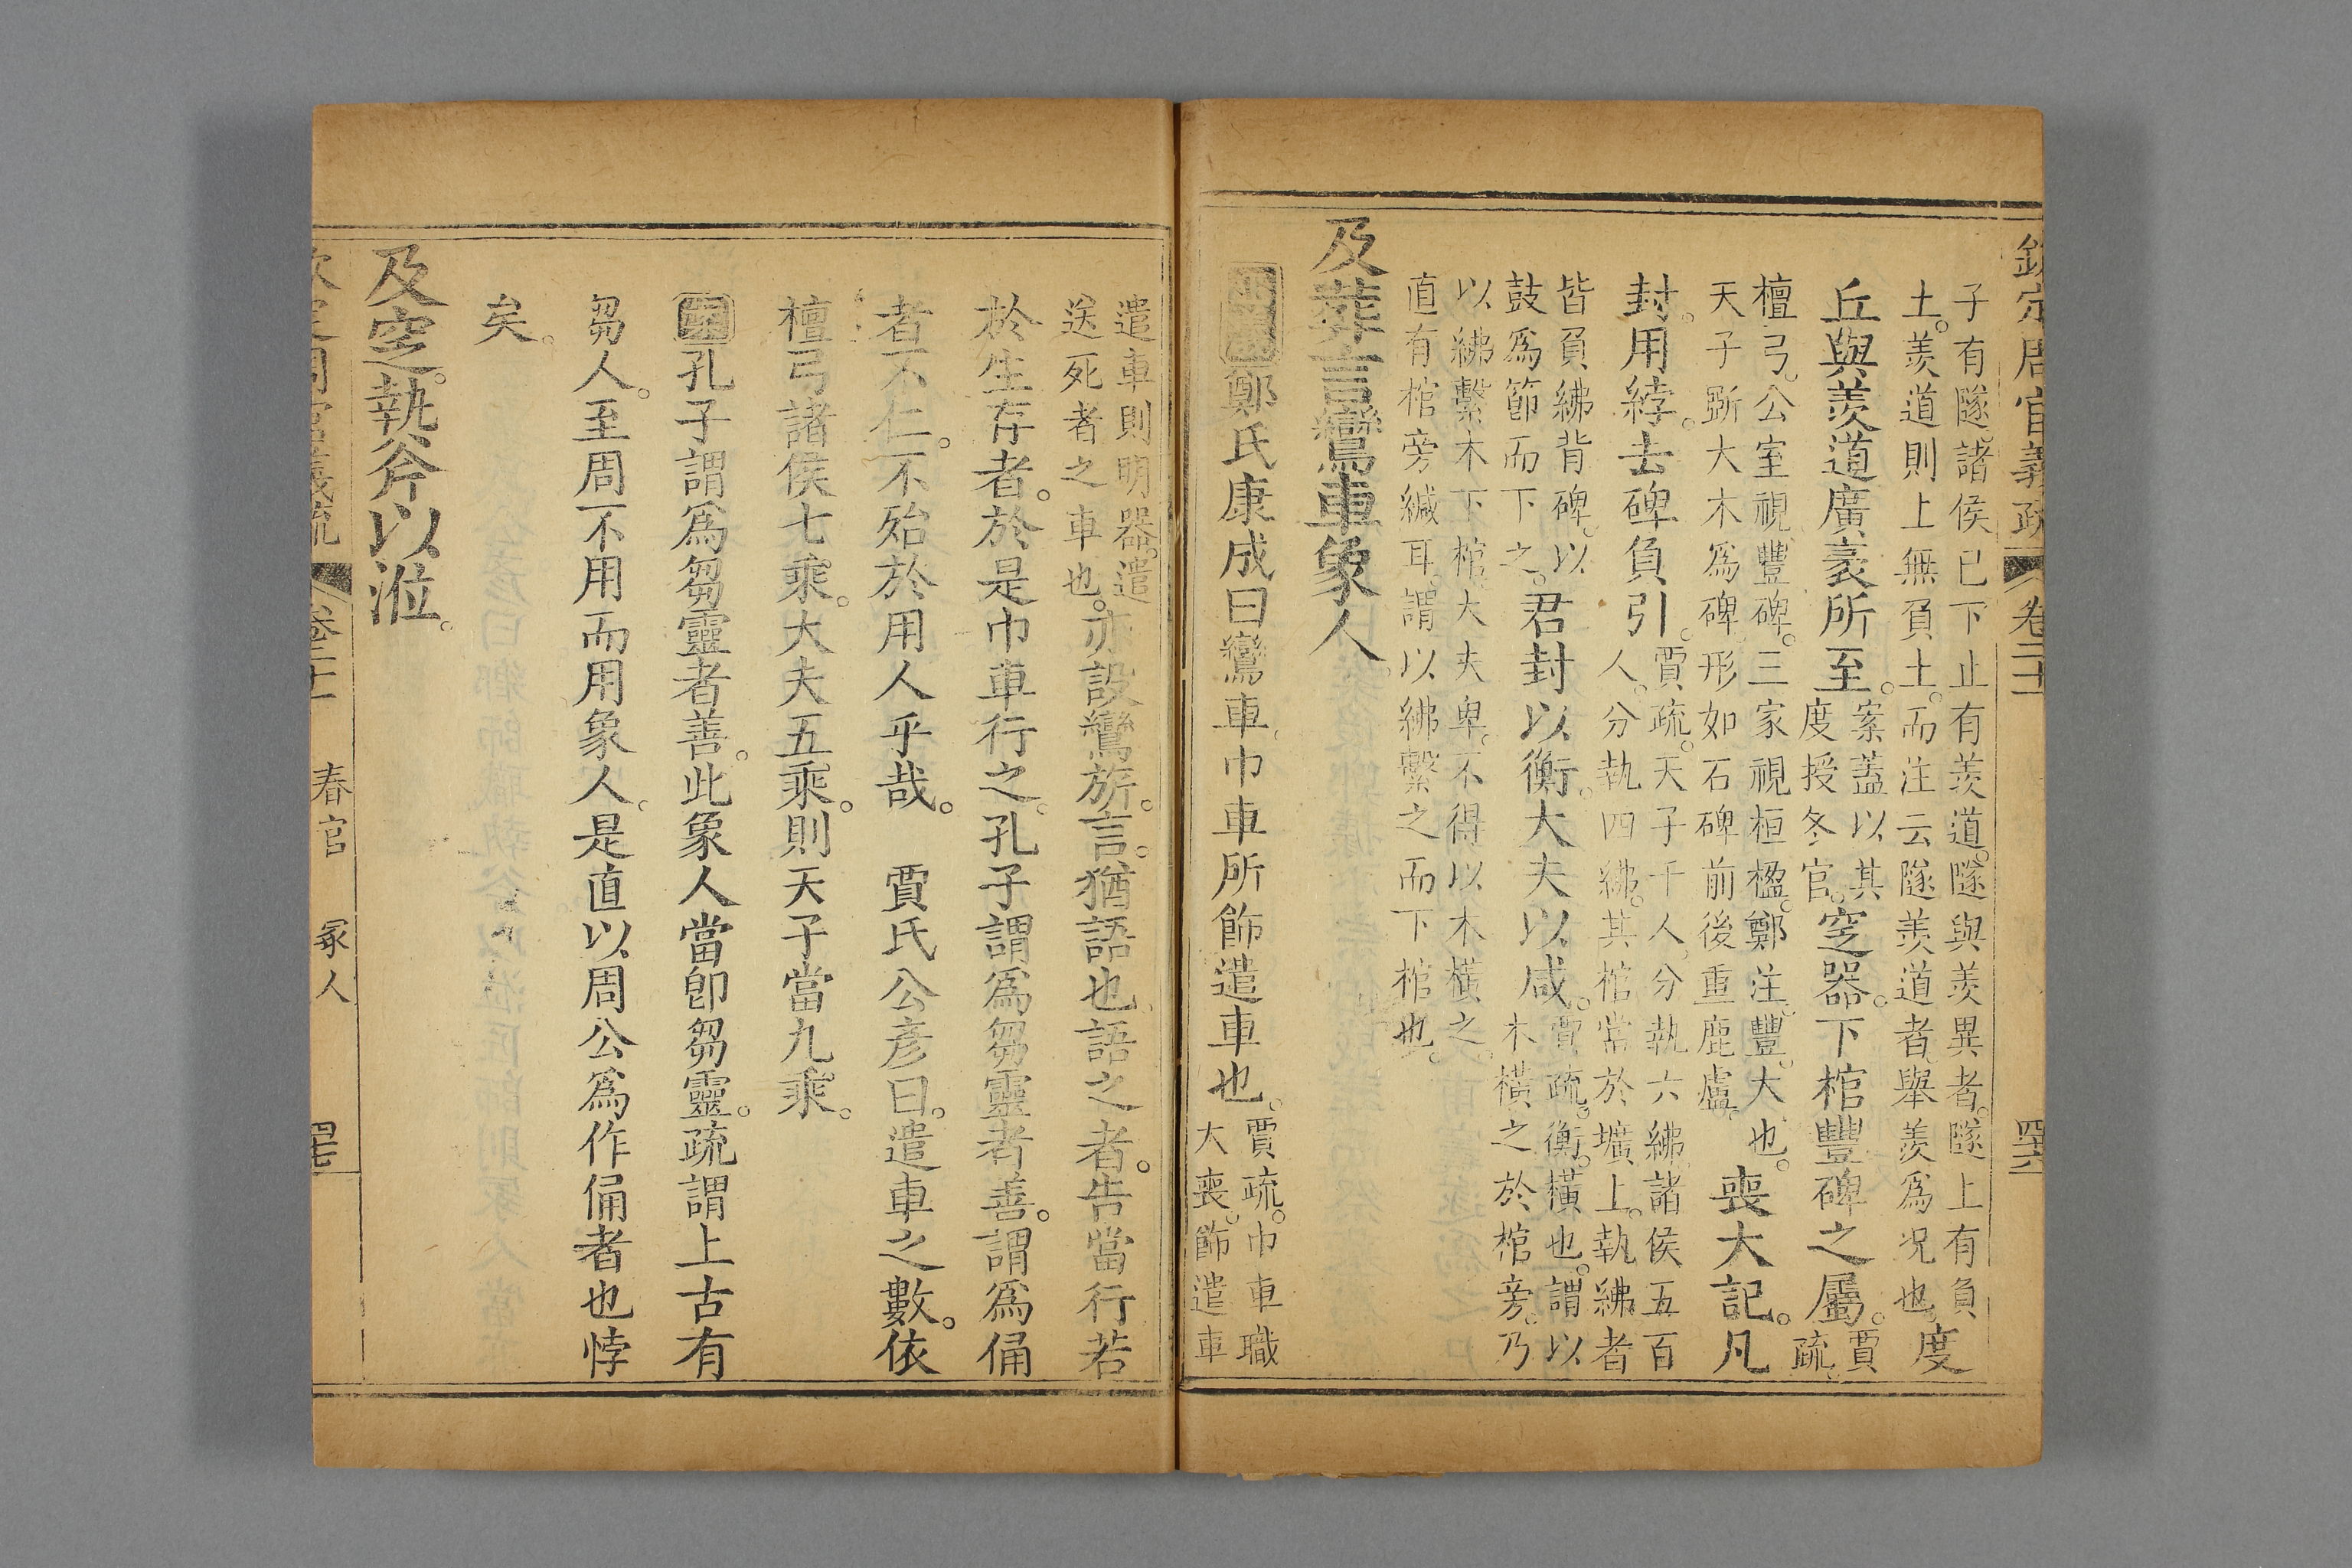 欽定周官義疏 卷二十一 四十六
子有隧諸侯已下止有羨道。隧與羨異者。隧上有負
土。羨道則上無負土。而注云隧羨道者舉羨爲况也。度
丘與羨道廣袤所至。案蓋以其度授冬官。窆器。下棺豐碑之屬。賈疏。
檀弓。公室視豐碑。三家視桓楹。鄭注。豐。大也。
天子斲大木爲碑形如石碑前後重鹿盧。喪大記。凡
封。用綍。去碑負引。賈疏。天子千人。分執六紼諸侯五百
人。分執四紼。其棺當於壙上。執紼者
皆負紼背碑。以鼓爲節而下之。君封以衡。大夫以咸。賈疏。衡。橫也。謂以
木橫之於棺旁。乃
以紼繫木下棺。大夫卑。不得以木橫之。
直有棺旁緘耳。謂以紼繫之而下棺也。
及葬言鸞車象人。
正義鄭氏康成曰鸞車。巾車所飾遣車也。賈疏。巾車職
大喪。飾遣車
遣車則明器。遣
送死者之車也。亦設鸞旂。言。猶語也。語之者。告當行若
於生存者。於是巾車行之。孔子謂爲芻靈者善。謂爲俑
者不仁。不殆於用人乎哉。 賈氏公彥曰。遣車之數。依
檀弓諸侯七乘。大夫五乘。則天子當九乘。
案孔子謂爲芻靈者善。此象人當卽芻靈。疏謂上古有
芻人。至周不用而用象人。是直以周公爲作俑者也悖
矣。
及窆。執斧以涖。
欽定周官義疏 卷二十一 春官 冢人 四十七